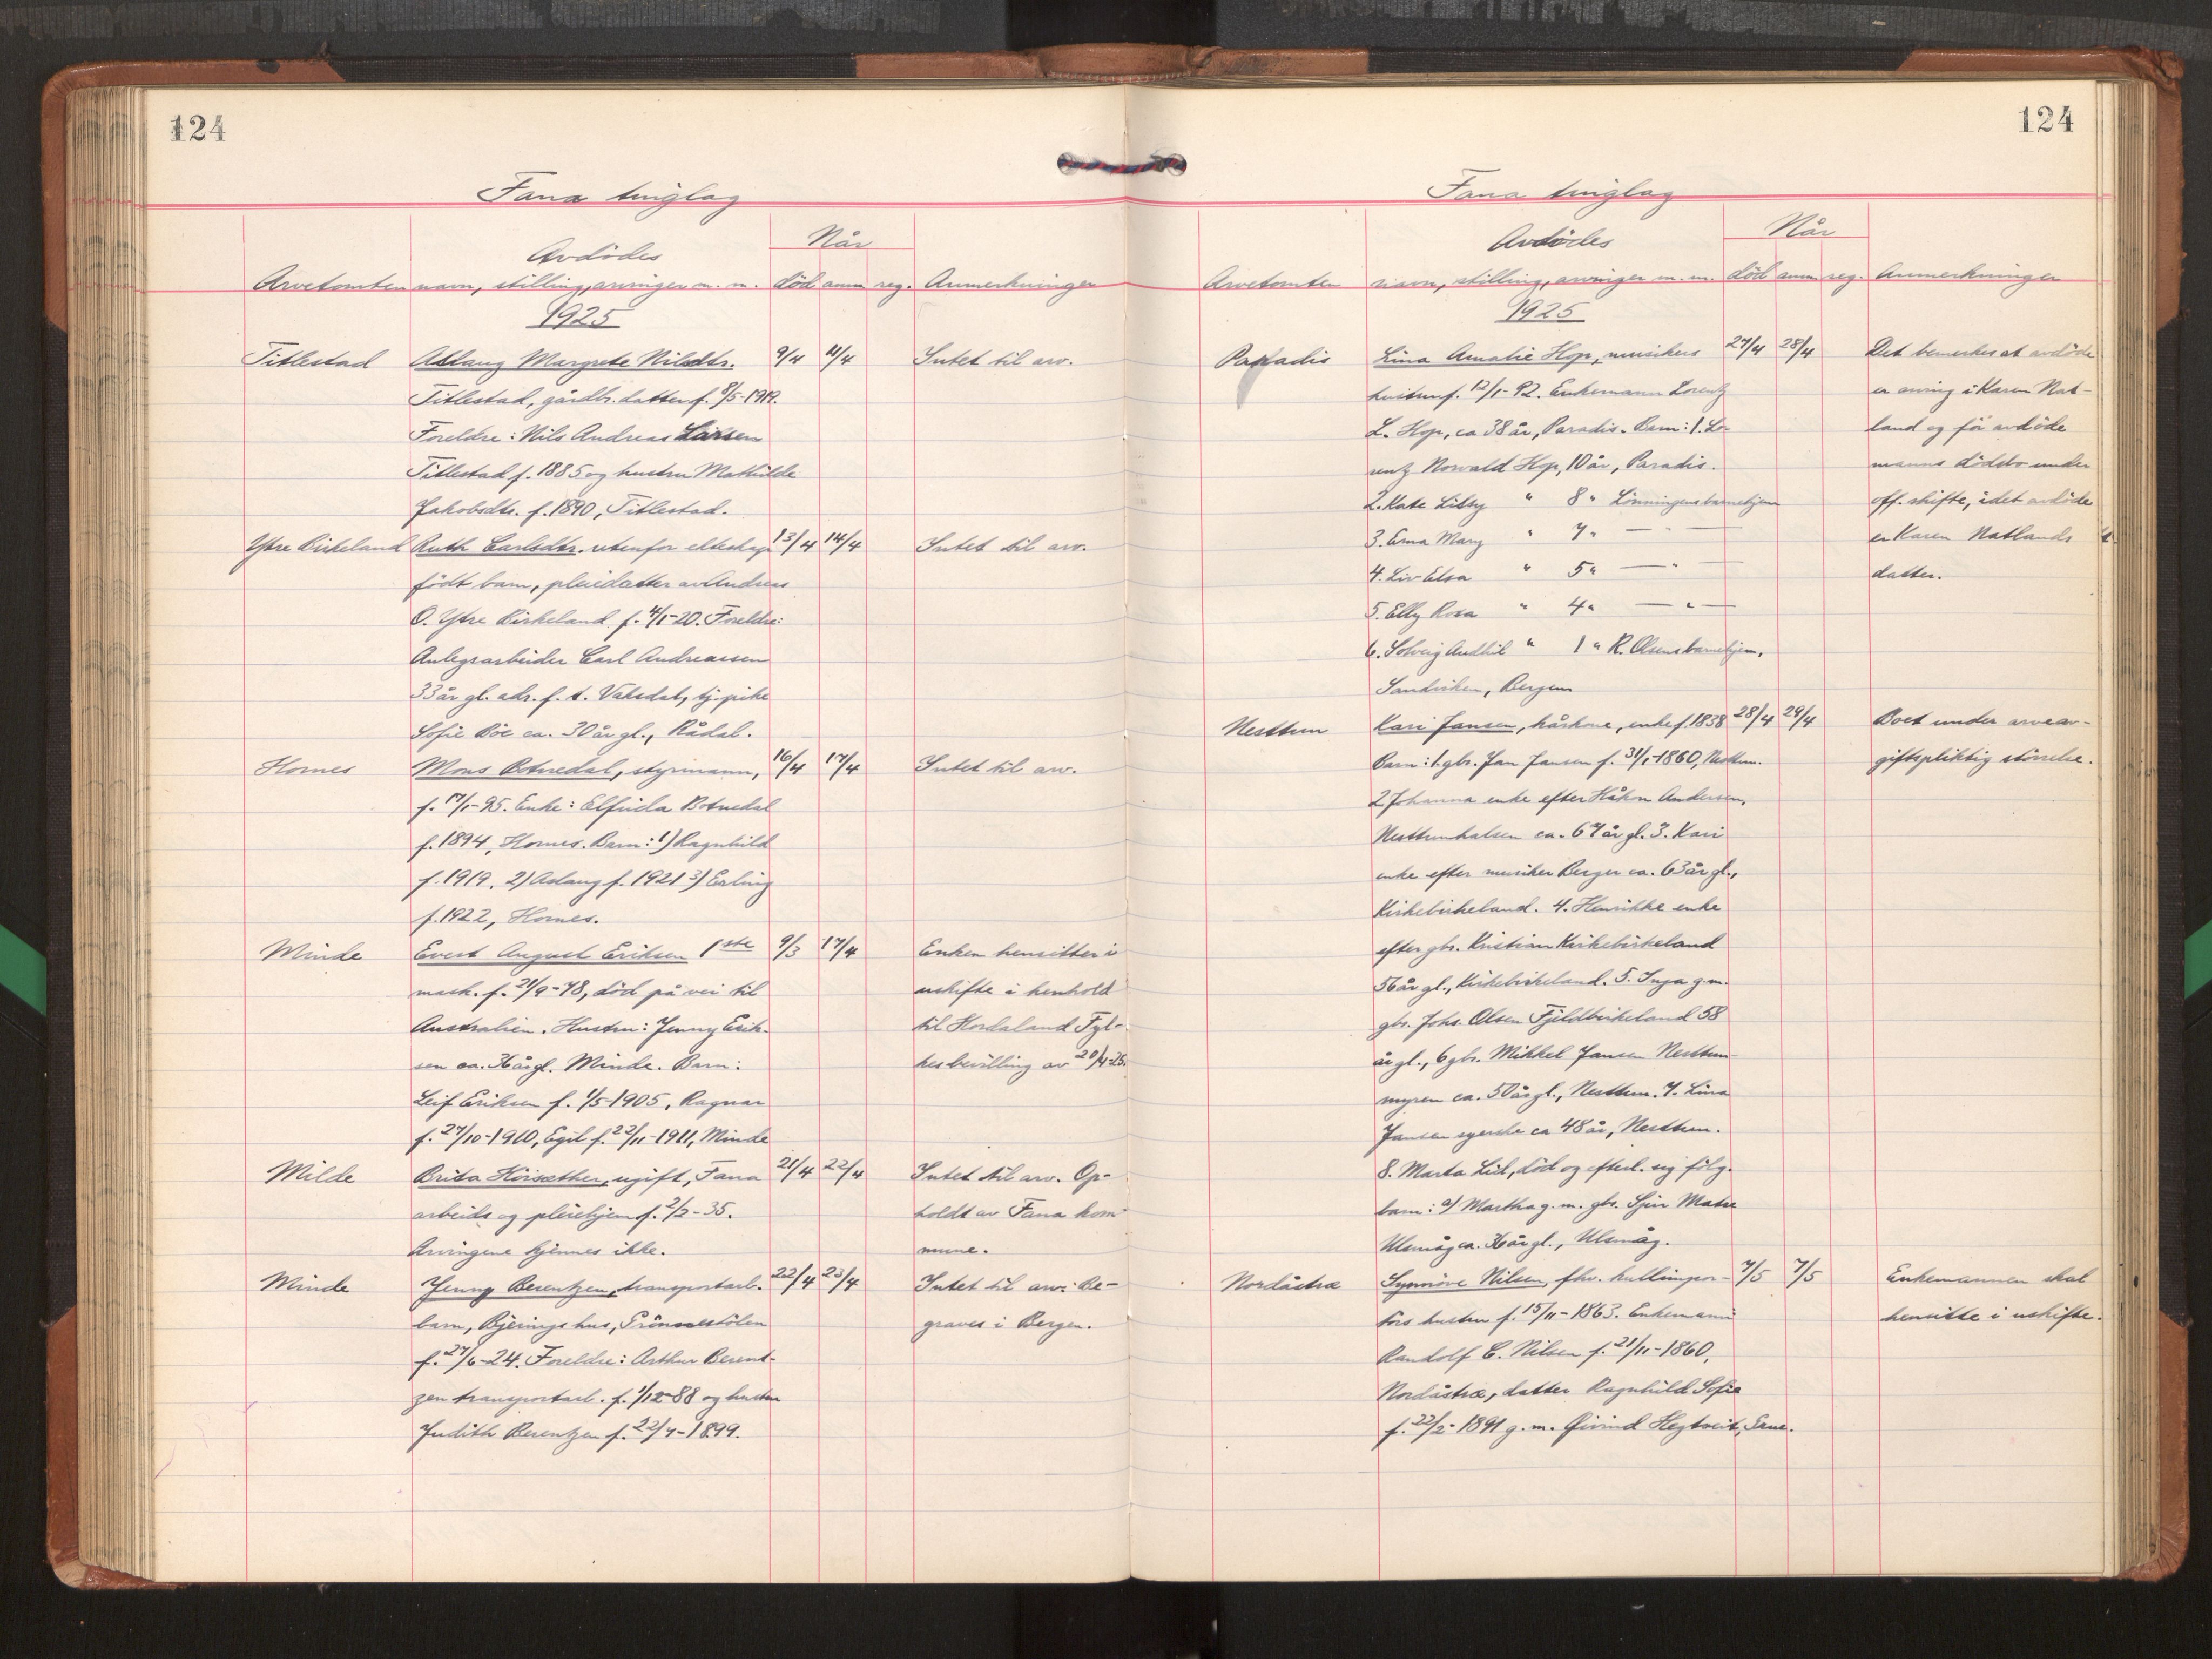 124
Fana tinglag
Avdödes
Når
Arvetomten navn, stilling, arvinger m. m. död anm reg. Anmerkninger
1925
Titlestad Aslaug Margrete Nilsdtr. 9/4 11/4 Intet til arv.
Titlestad, gårdbr. datter f. 8/5-1919.
Foreldre: Nils Andreas Larsen
Titlestad f. 1885 og hustru Mathilde
Jakobsdtr. f. 1890, Titlestad.
Ytre Birkeland Ruth Carlsdtr. utenfor ekteskap 13/4 14/4 Intet til arv.
födt barn, pleiedatter av Andreas
O. Ytre Birkeland f. 4/1-20. Foreldre:
Anlegsarbeider Carl Andreassen
33 år gl. adr. f. t. Vaksdal, tj. pike
Sofie Böe ca. 30 år gl., Rådal.
Hornes Mons Botnedal, styrmann, 16/4 17/4 Intet til arv.
f. 17/1-95. Enke: Elfrida Botnedal
f. 1894, Hornes. Barn: 1) Ragnhild
f. 1919. 2) Aslaug f. 1921 3) Erling
f. 1922, Hornes.
Minde Evert August Eriksen 1ste 9/3 17/4 Enken hensitter i
mask. f. 21/9-78, död på vei til uskifte i henhold
Australien. Hustru: Jenny Erik- til Hordaland Fyl-
sen ca. 36 år gl. Minde. Barn: kes bevilling av 20/4-25.
Leif Eriksen f. 1/5-1905, Ragnar
f. 27/10-1910, Egil f. 22/11-1911, Minde
Milde Brita Höisæther, ugift, Fana 21/4 22/4 Intet til arv. Op-
arbeids og pleiehjem f. 2/2-35. holdt av Fana kom-
Arvingene kjennes ikke. mune.
Minde Jenny Berentzen, transportarb. 22/4 23/4 Intet til arv. Be-
barn, Bjerings hus, Grönnestölen graves i Bergen.
f. 27/6-24. Foreldre: Arthur Berent-
zen transportarb. f. 1/12-88 og hustru
Judith Berentzen f. 22/4-1899.
124
Fana tinglag
Avdödes
Når
Arvetomten navn, stilling, arvinger m. m. död anm reg. Anmerkninger
1925
Paradis Lina Amalie Hop, musikers 27/4 28/4 Det bemerkes at avdöde
hustru f. 12/1-92. Enkemann Lorentz er arving i Karen Nat-
L. Hop, ca 38 år, Paradis. Barn: 1. Lo- land og för avdöde
rentz Norvald Hop, 10 år, Paradis. manns dödsbo under
2. Kate Litsy " 8 " Lönningens barnehjem off. skifte, idet avdöde
3. Erna Mary " 7 " — " — er Karen Natlands
4. Liv Elsa " 5 " — " — datter.
5. Elly Rosa " 4 " — " —
6. Solveig Audhil " 1 " R. Olsens barnehjem,
Sandviken, Bergen
Nesttun Kari Jansen, kårkone, enke f. 1838 28/4 29/4 Boet under arveav-
Barn: 1. gbr. Jan Jansen f. 31/1-1860, Nesttun. giftspliktig störrelse.
2. Johanna enke efter Håkon Andersen,
Nesttunhalsen ca. 67 år gl. 3. Kari
enke efter musiker Berger ca. 63 år gl.,
Kirkebirkeland. 4. Henrikke enke
efter gbr. Kristian Kirkebirkeland
56 år gl., Kirkebirkeland. 5. Inga g. m.
gbr. Johs. Olsen Fjeldbirkeland 58
år gl., 6 gbr. Mikkel Jansen Nesttun-
myren ca. 50 år gl., Nesttun. 7. Lina
Jansen syerske ca 48 år, Nesttun.
8. Marta Lid, död og efterl. sig fölg.
barn: a) Martha g. m. gbr. Sjur Matre
Ulsmåg ca. 36 år gl., Ulsmåg.
Nordåstræ Synnöve Nilsen, fhv. kullimpor- 7/5 7/5 Enkemannen skal
törs hustru f. 15/11-1863. Enkemann hensitte i uskifte.
Randolf C. Nilsen f. 21/11-1860,
Nordåstræ, datter Ragnhild Sofie
f. 22/2-1891 g. m. Øivind Hegtveit,